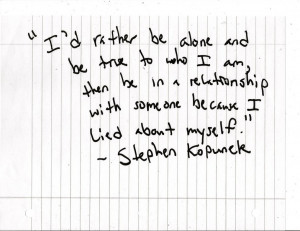 "I'd rather be alone and
be true to who I am,
then be in a relationship
with someone because I
lied about myself."
- Stephen Kopunek